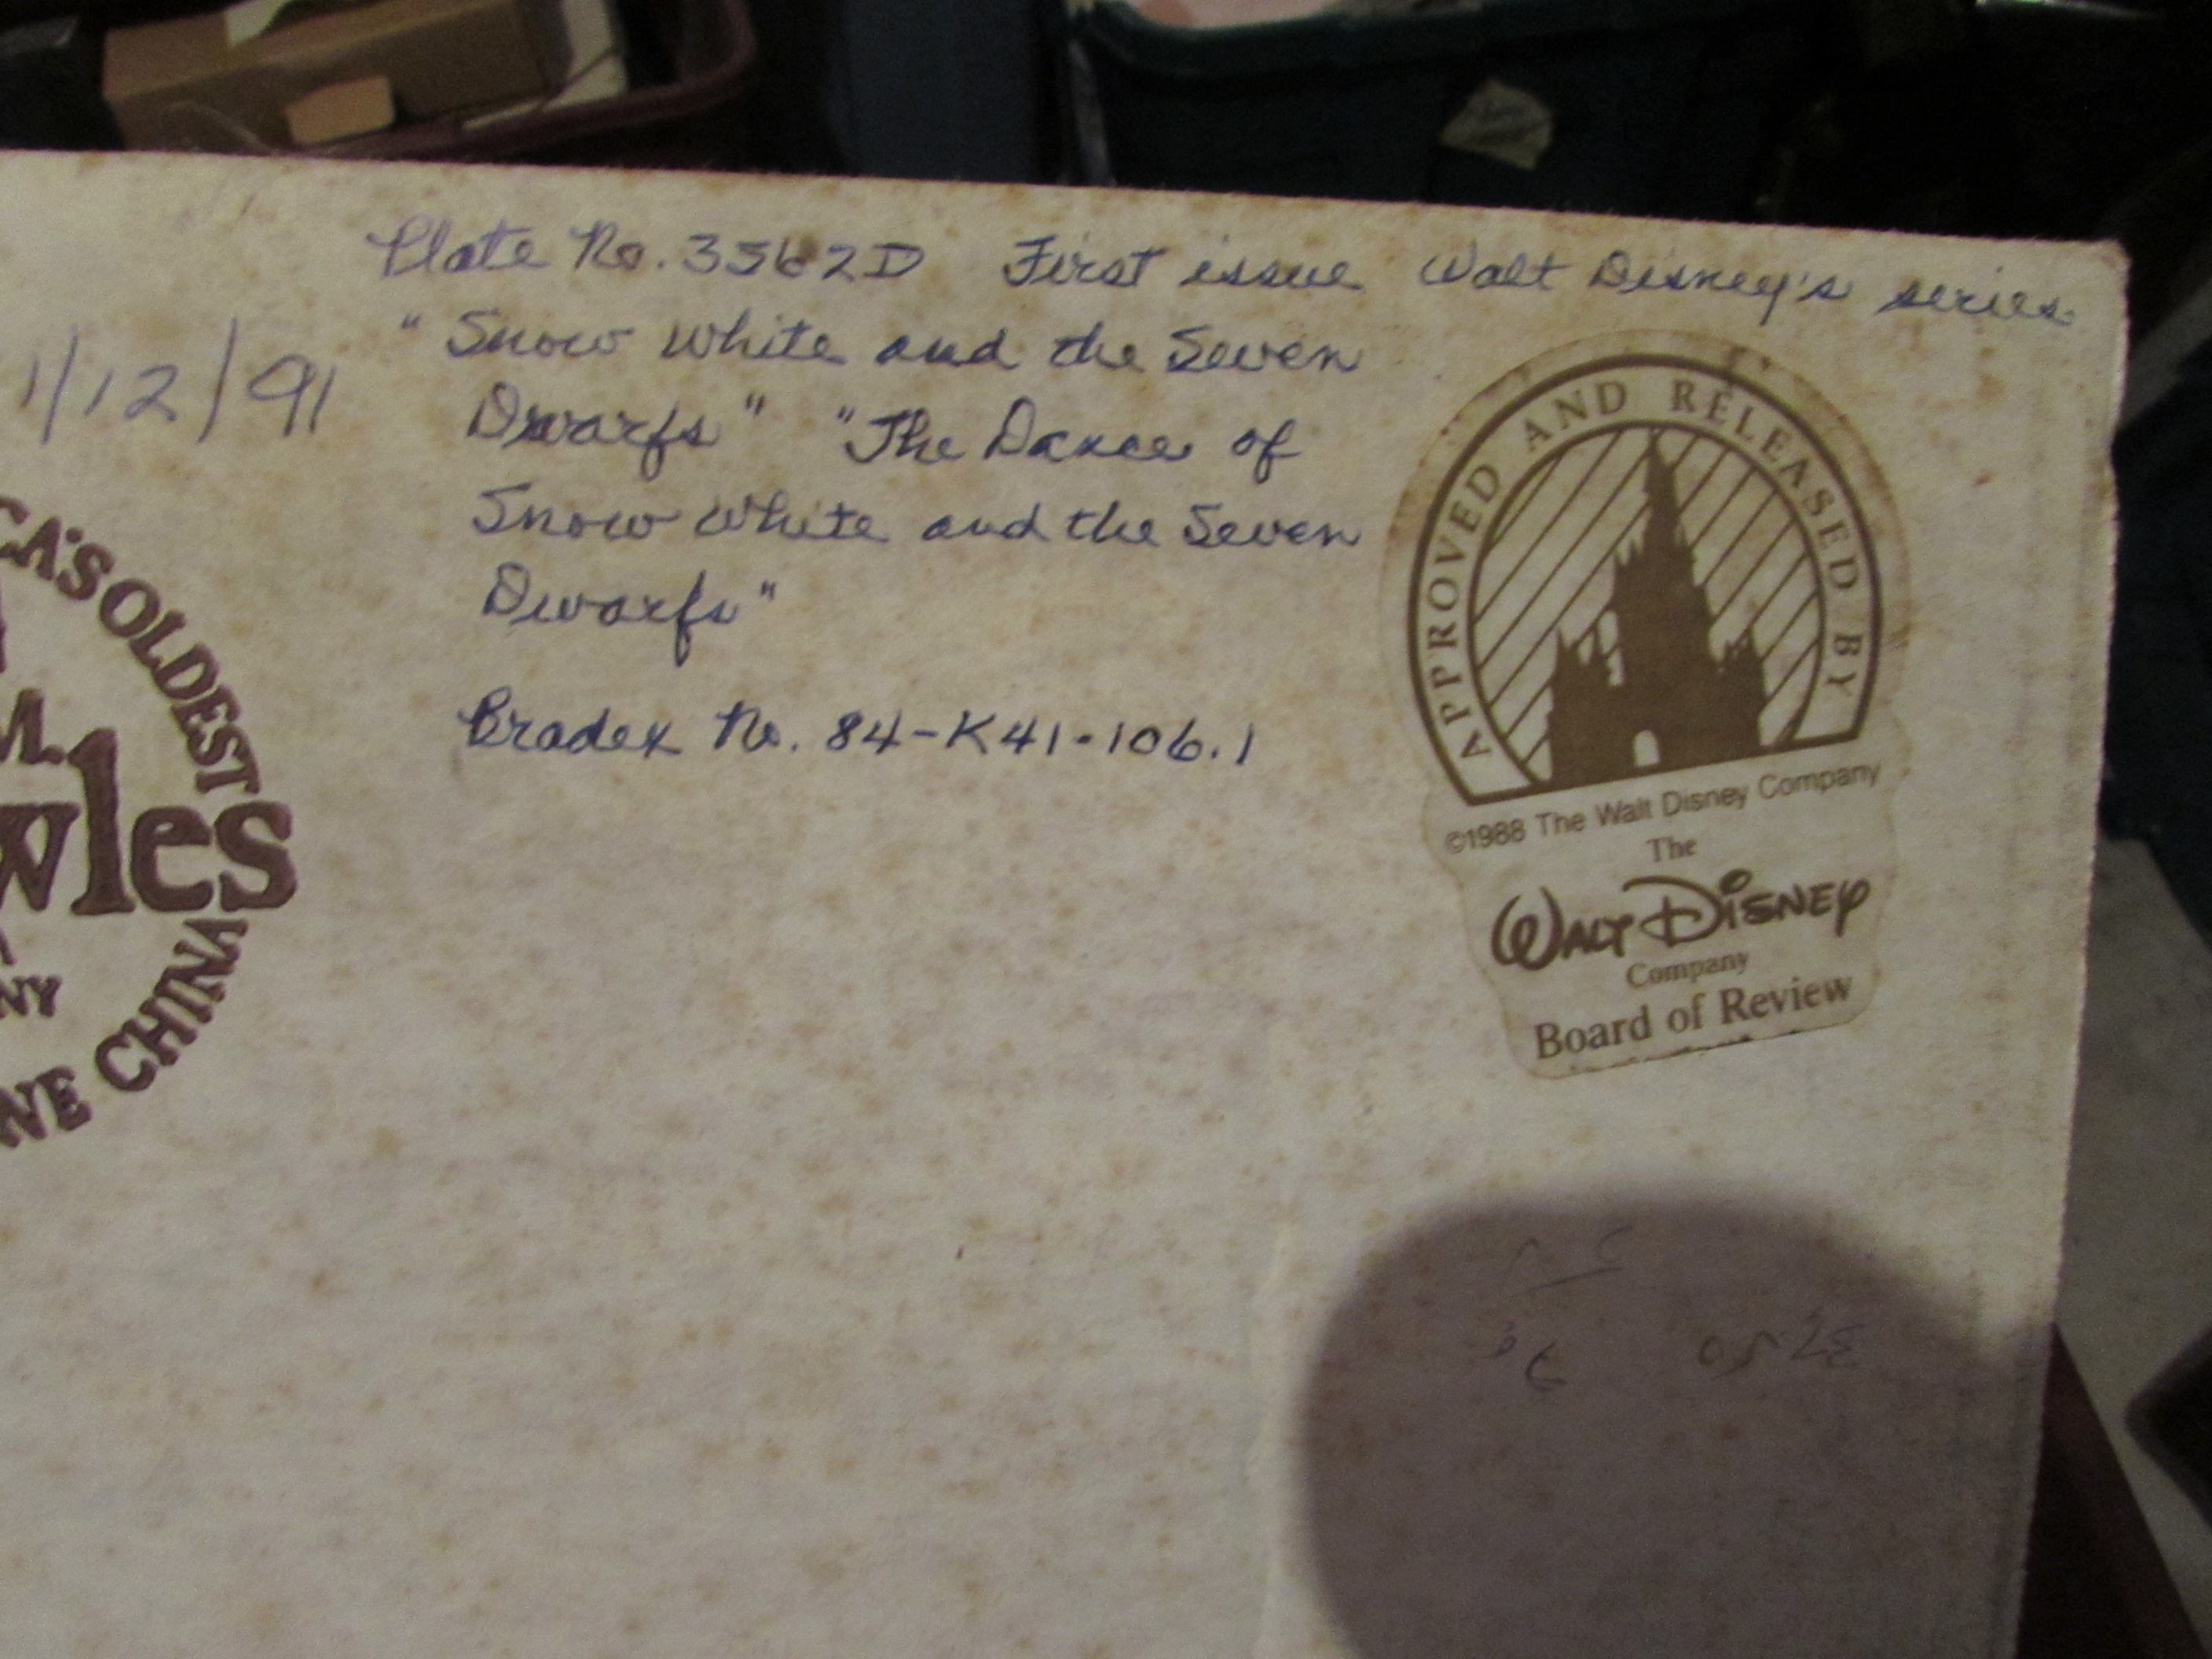 Plate No. 3562D First issue Walt Disney's series
"Snow White and the Seven
Dwarfs" "The Dance of
Snow White and the Seven
Dwarfs"
Bradex No. 84-K41-106.1
1/12/91
CA'S OLDEST
M.
wles
NY
NE CHINA
APPROVED AND RELEASED BY
©1988 The Walt Disney Company
The
WALT DISNEY
Company
Board of Review
37.50